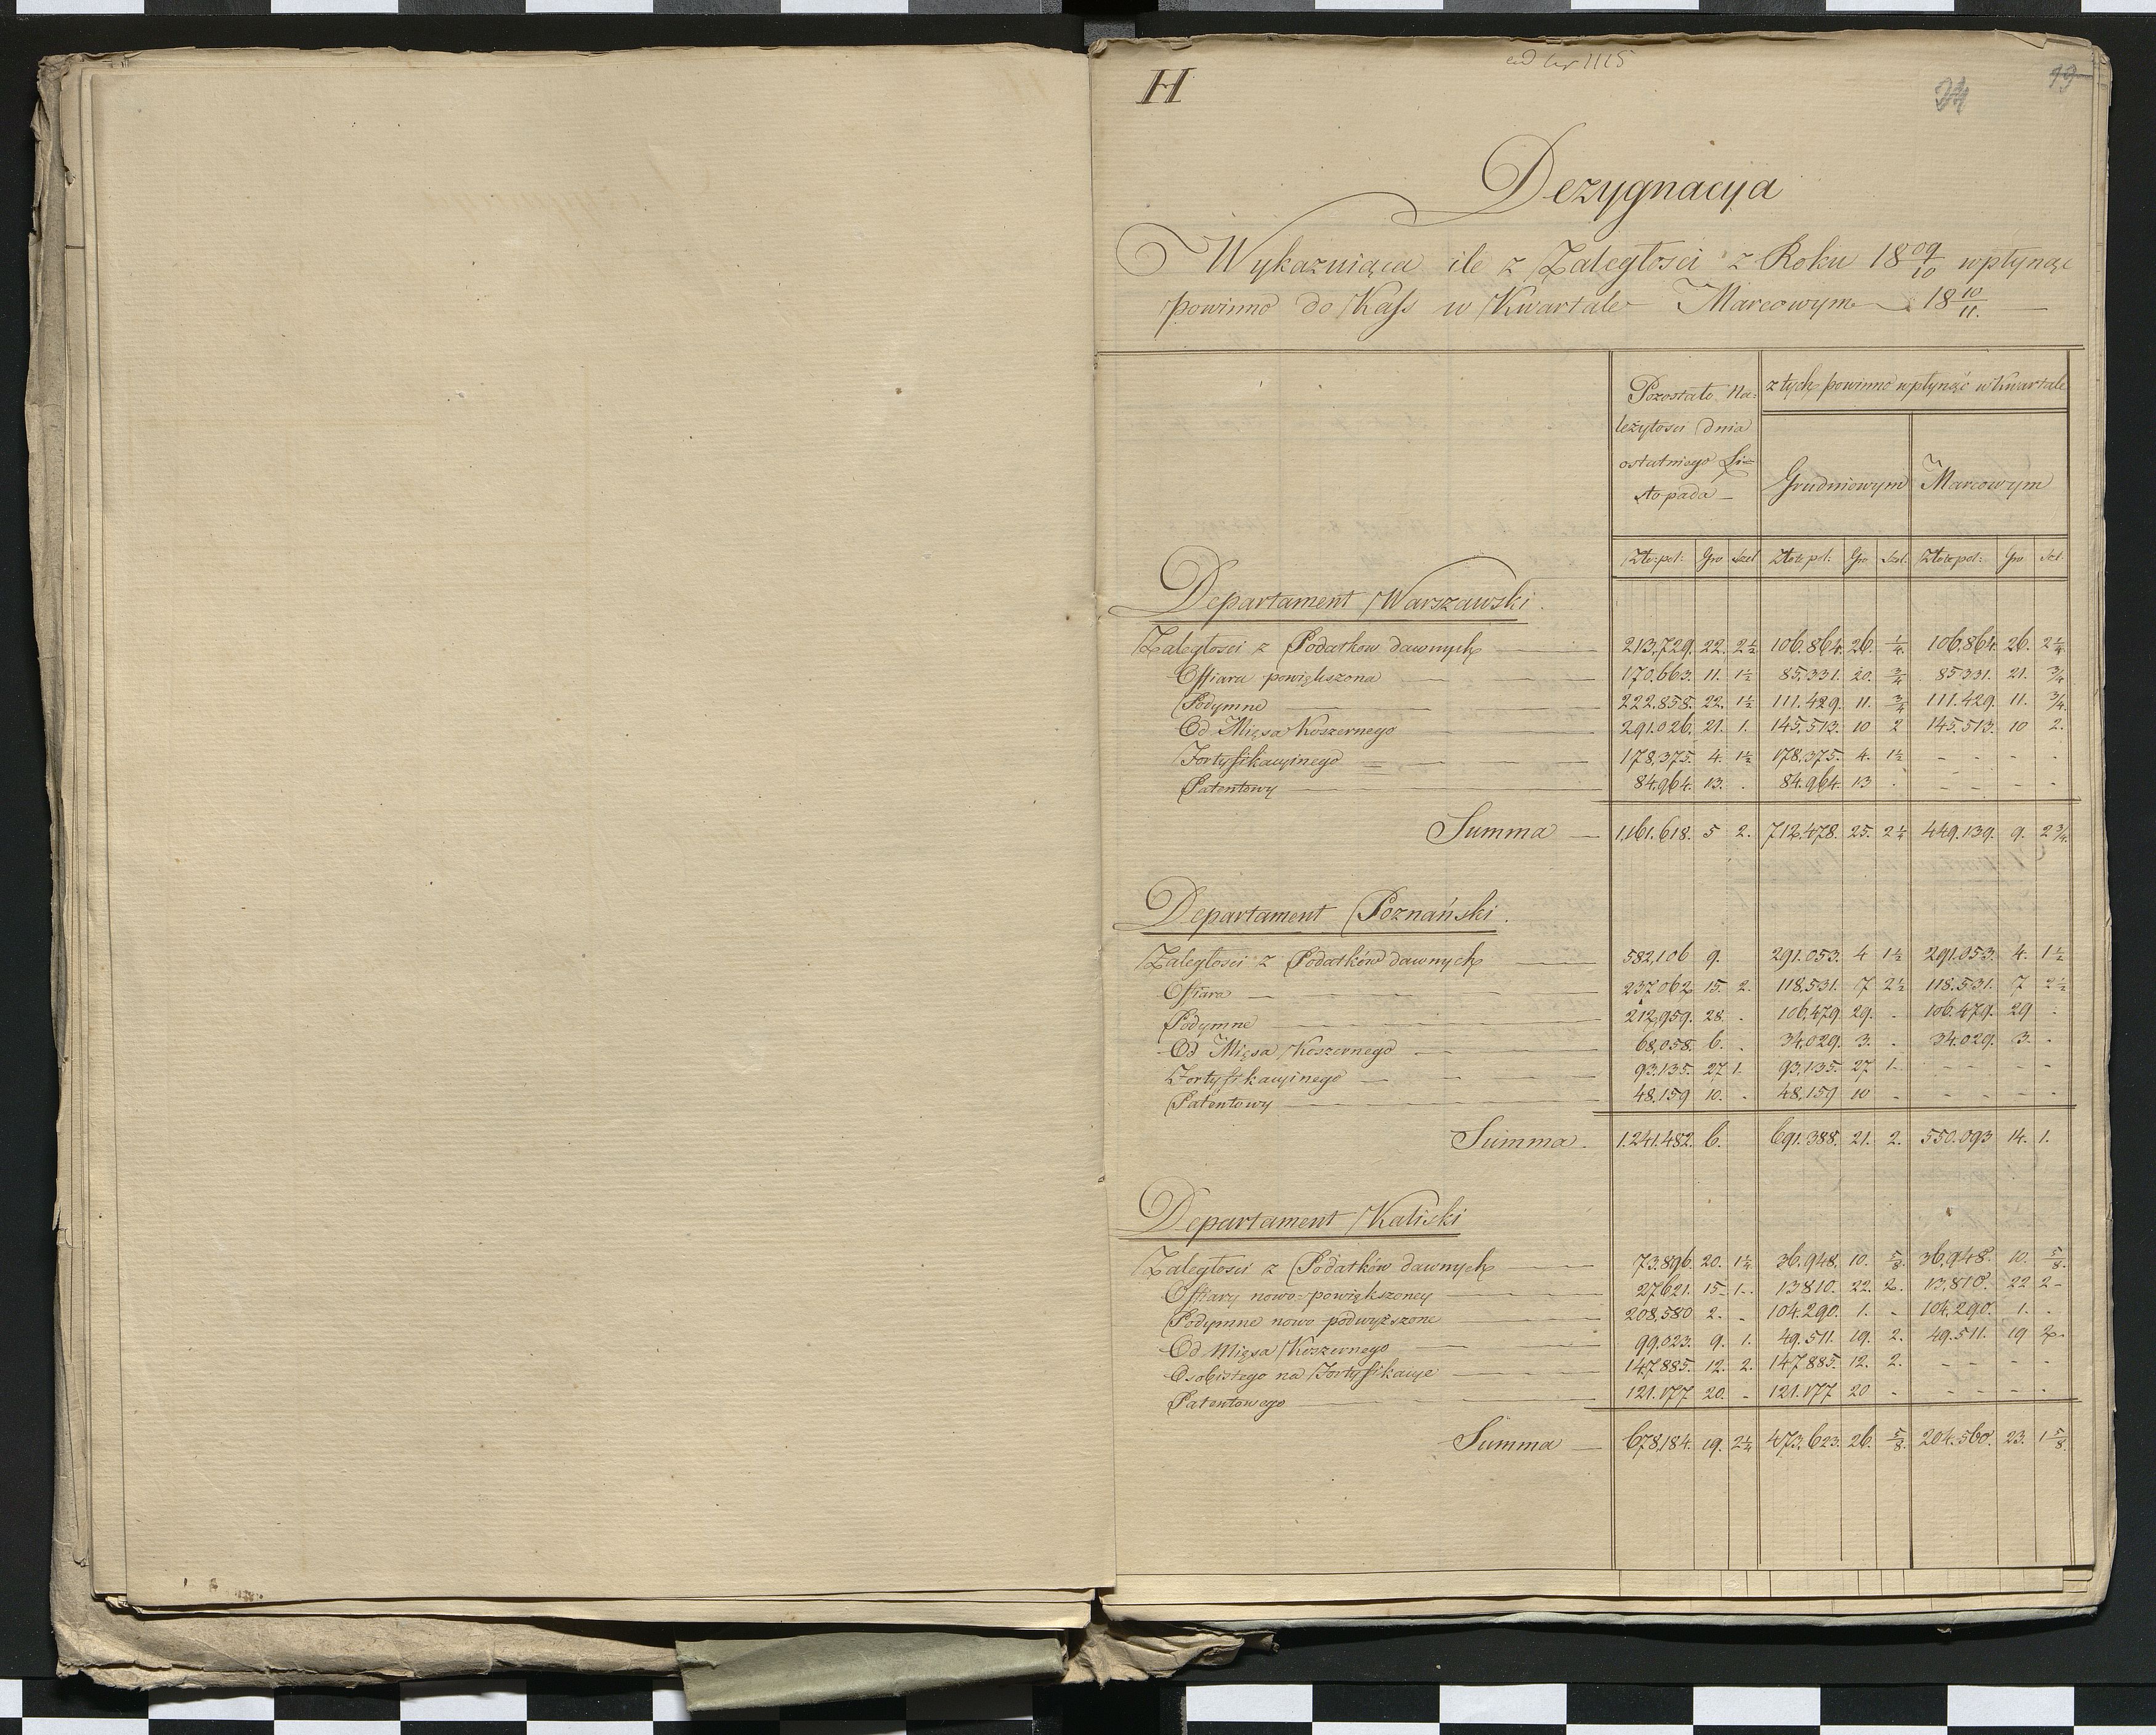 ad Nr 1115
H
24
19
Dezygnacyia
Wykazuiąca ile z Zaległosci z Roku 18 09/10 wpłynąć
powinno do Kass w Kwartale Marcowym 18 10/11.
Pozostało Na-
leżytosci dnia
ostatniego Li=
stopada
z tych powinno wpłynąć w Kwartale
Grudniowym Marcowym
Złote pol: Gro Szel Złote pol: Gro Szel. Złote pol: Gro Szel.
Departament Warszawski.
Zaległosci z Podatkow dawnych 213,729. 22. 2½ 106.864. 26. ¼. 106.864. 26. 2¼
Offiara powiększona 170.663. 11. 1½ 85,331. 20. ¾ 85331. 21. ¾
Podymne 222.858. 22. 1½ 111.429. 11. ¾ 111.429. 11. ¾.
Od Mięsa Koszernego 291.026. 21. 1. 145,513. 10 2 145.513. 10 2.
Fortyfikacyinego 178,375. 4. 1½ 178,375. 4. 1½ - - - -
Patentowy 84.964. 13. . 84.964. 13 . - - - -
Summa 1,161.618. 5 2. 712.478. 25. 2¼ 449.139. 9. 2¾.
Departament Poznański.
Zaległosci z Podatków dawnych 582,106 9. 291.053. 4 1½ 291.053. 4. 1½
Offiara 237.062 15. 2. 118.531. 7 2½ 118.531. 7 2½
Podymne 212,959. 28. . 106,479 29. . 106.479. 29 .
Od Mięsa Koszernego 68,058. 6. . 34,029. 3. . 34.029. 3. .
Fortyfikacyinego 93.135. 27 1. 93,135. 27 1. - - - -
Patentowy 48.159 10. . 48,159 10 - - - - -
Summa. 1.241.482. 6. 691.388. 21. 2. 550.093 14. 1.
Departament Kaliski
Zaległosci z Podatków dawnych 73.896. 20. 1¼ 36.948. 10. 5/8. 36,948. 10. 5/8.
Offiary nowo=powiększoney 27621. 15. 1. 13810. 22. 2. 13,810. 22 2-
Podymne nowo podwyższone 208,580 2. . 104.290. 1. - 104,290. 1. .
Od Mięsa Koszernego 99.023. 9. 1. 49.511. 19. 2. 49.511. 19 2.
Osobistego na Fortyfikacye 147885. 12. 2. 147885. 12. 2. - - - -
Patentowego 121.177. 20. . 121.177 20 . - - - -
Summa 678,184. 19. 2¼ 473.623. 26. 5/8. 204.560. 23. 1 5/8.